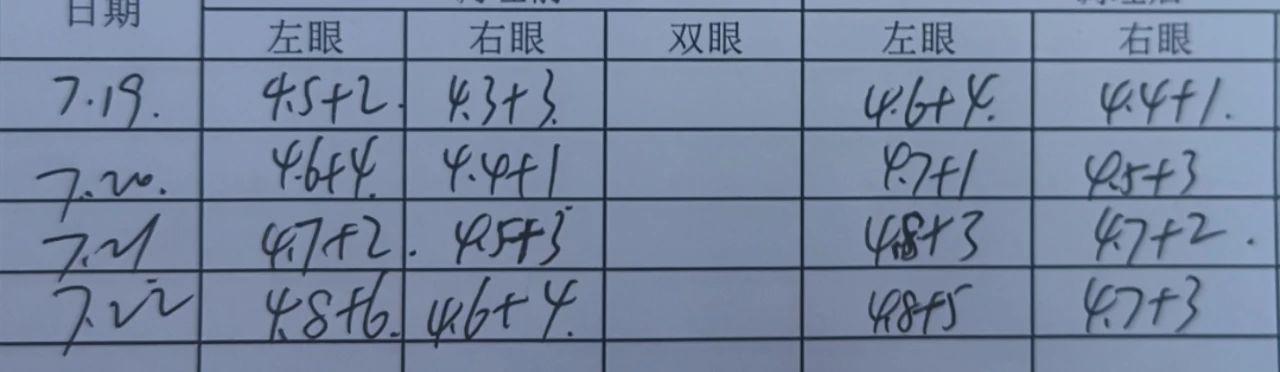 日期
左眼 右眼 双眼 左眼 右眼
7.19. 4.5+2. 4.3+3. 4.6+4. 4.4+1.
7.20. 4.6+4. 4.4+1 4.7+1 4.5+3
7.21 4.7+2. 4.5+3 4.8+3 4.7+2.
7.22 4.8+6. 4.6+4. 4.8+5 4.7+3